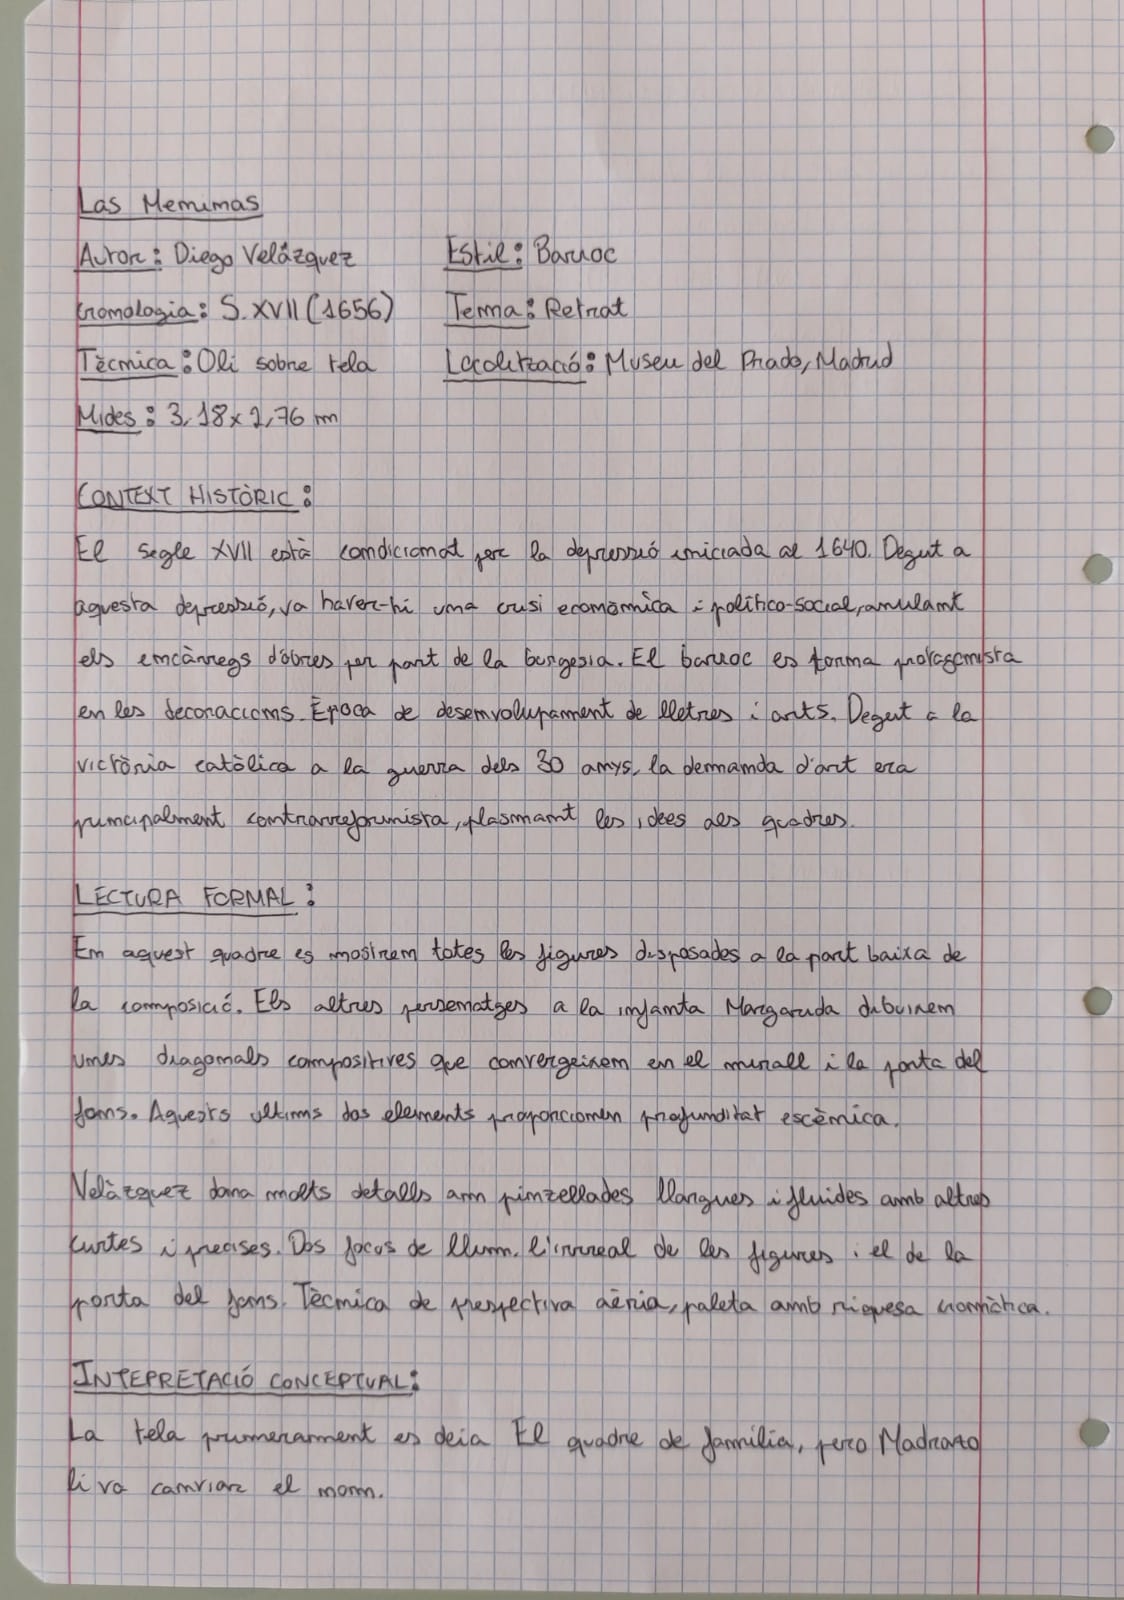 Las Meninas
Autor: Diego Velázquez Estil: Barroc
Cronologia: S. XVII (1656) Tema: Retrat
Tècnica: Oli sobre tela Localització: Museu del Prado, Madrid
Mides: 3,18 x 2,76 m
CONTEXT HISTÒRIC:
El segle XVII està condicionat per la depressió iniciada al 1640. Degut a
aquesta depressió, va haver-hi una crisi econòmica i político-social, anulant
els encàrregs d'obres per part de la burgesia. El barroc es torna protagonista
en les decoracions. Època de desenvolupament de lletres i arts. Degut a la
victòria catòlica a la guerra dels 30 anys, la demanda d'art era
principalment contrarreformista, plasmant les idees als quadres.
LECTURA FORMAL:
En aquest quadre es mostren totes les figures disposades a la part baixa de
la composició. Els altres personatges a la infanta Margarida dibuixen
unes diagonals compositives que convergeixen en el mirall i la porta del
fons. Aquests ultims dos elements proporcionen profunditat escènica.
Velàzquez dona molts detalls amb pinzellades llargues i fluides amb altres
curtes i precises. Dos focus de llum, l'irreal de les figures i el de la
porta del fons. Tècnica de perspectiva aèria, paleta amb riquesa cromàtica.
INTEPRETACIÓ CONCEPTUAL:
La tela primerament es deia El quadre de família, pero Madrazo
li va canviar el nom.